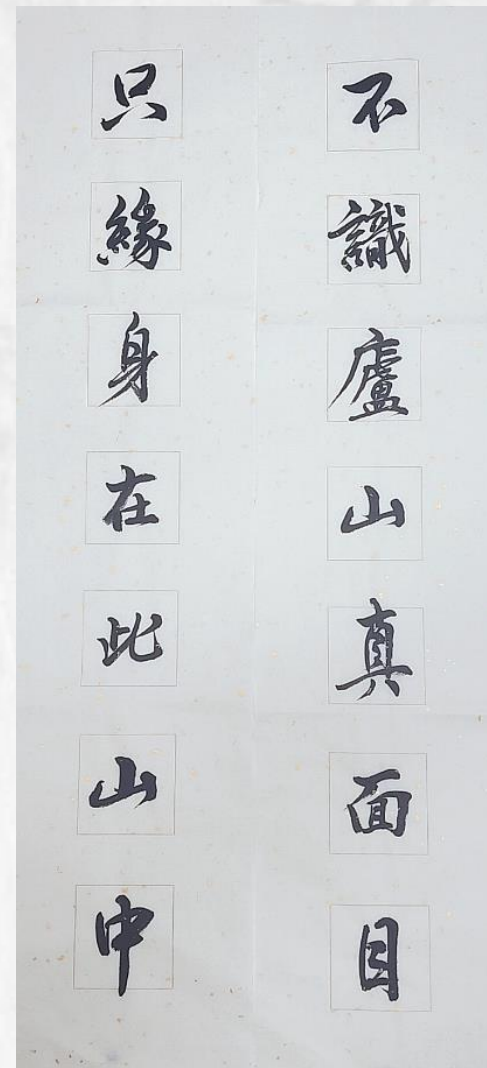 不識廬山真面目
只緣身在此山申